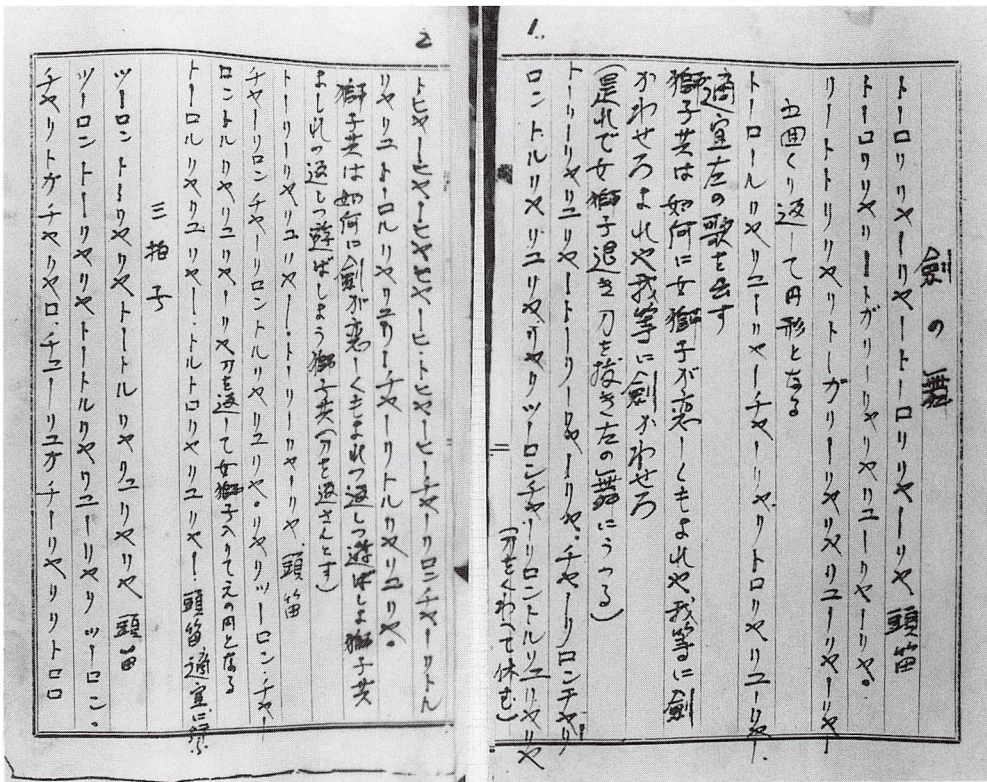 1.
剣の舞
トーロリリヤーリヤートーロリリヤーリヤ 頭笛
トーロリリヤリートガリーリヤリユーリヤーリヤ。
リートトリリヤリトーガリーリヤリユーリヤーリヤー
五囲くり返して円形となる
トーロールリヤリユーリヤーチヤーリヤリトロリヤリユーリヤー
適宜左の歌を出す
獅子共は如何に女獅子が恋しくもよれや我等に剣
かわせろよれや我等に剣かわせろ
(是れで女獅子退き刀を抜き左の舞にうつる)
トーリーリヤリユリヤートーリーリヤーリヤ。チヤーリロンチヤリ
ロントルリヤリユリヤリヤリツーロンチヤーリロントルリユリヤリヤ
(刀をくわへて休む)
2
トヒヤーヒヤーヒヤヒヤーヒ・トヒヤーヒーチヤーリロンチヤーリトル
リヤリユトーロルリヤリユリーチヤーリトルリヤリユリヤ。
獅子共は如何に剣が恋しくもよれつ返しつ遊ばしよ獅子共
よしれつ返しつ遊ばしよう獅子共(刀を返さんとす)
トーリーリヤリユリヤー・トーリーリヤーリヤ 頭笛
チヤーリロンチヤーリロントルリヤリユリヤ・リヤリツーロン・チヤー
ロントルリヤリユリヤーリヤ刀を返して女獅子入りてえの円となる
トーロルリヤリユリヤー・トルトロリヤリユリヤー 頭笛適宜に
三拍子
ツーロントーリヤリヤトートルリヤリユリヤリヤ 頭笛
ツーロントーリヤリヤトートルリヤリユーリヤリツーロン。
チヤリトガチヤリヤロ・チユーリユガチーリヤリリトロ